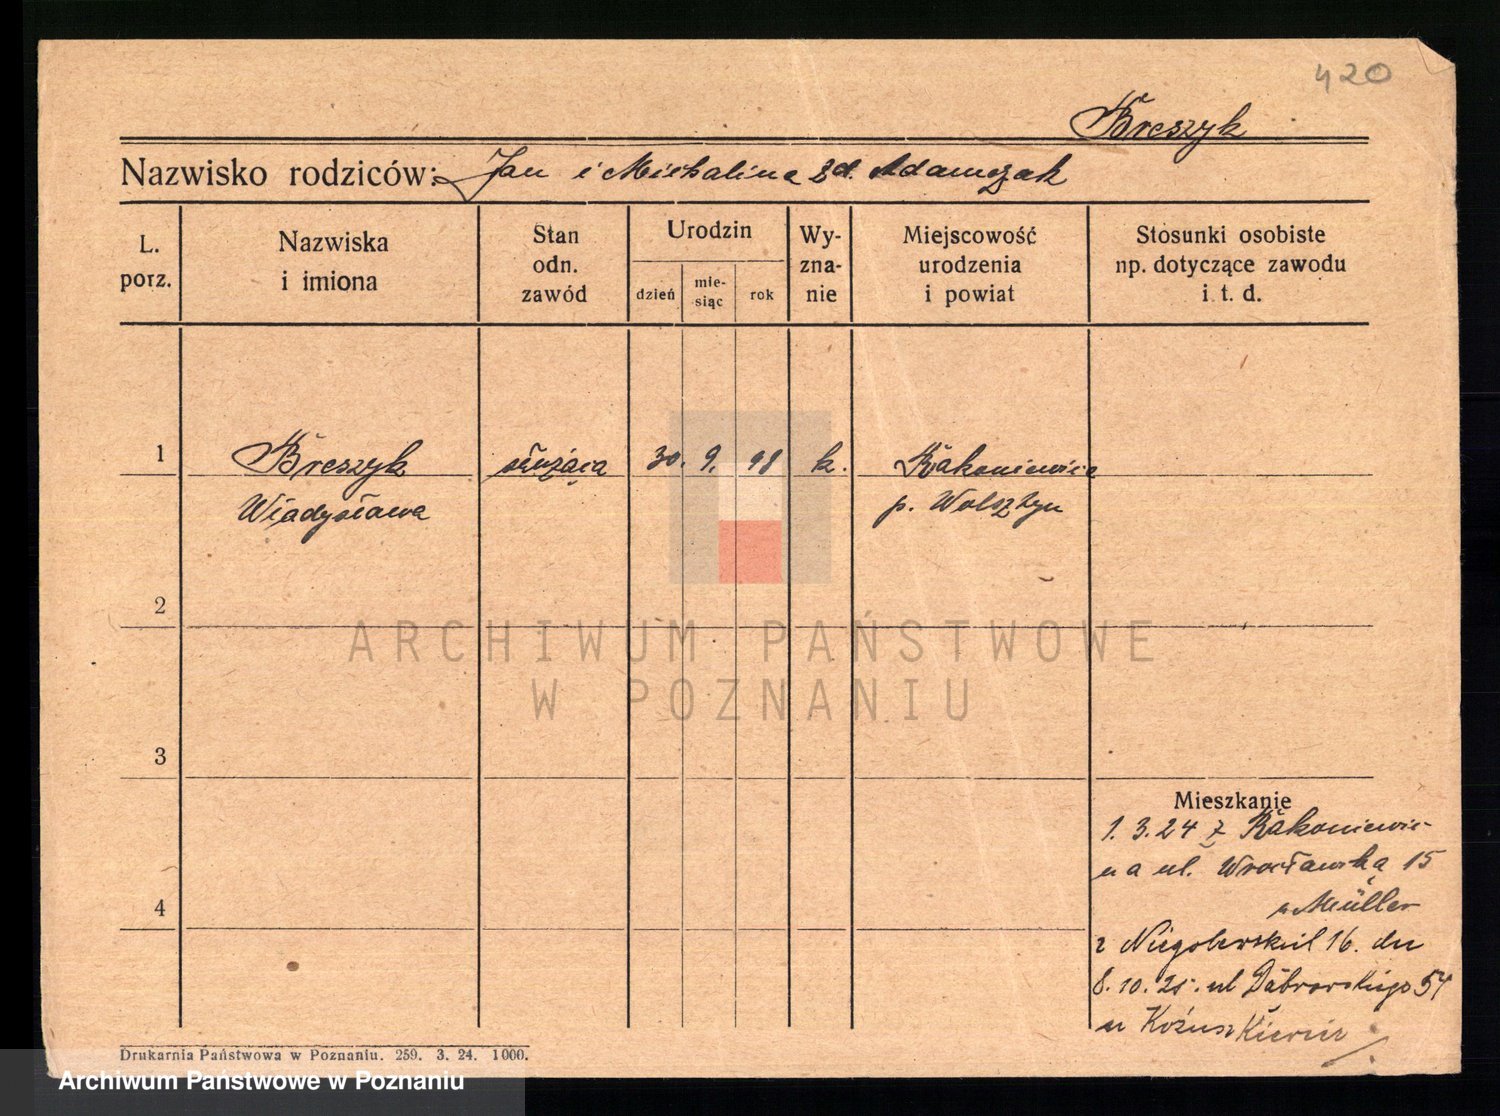 420
Breszyk
Nazwisko rodziców: Jan i Michalina zd. Adamczak
L. porz.
Nazwiska i imiona
Stan odn. zawód
Urodzin
dzień
mie-siąc
rok
Wy-zna-nie
Miejscowość urodzenia i powiat
Stosunki osobiste np. dotyczące zawodu i t. d.
1 Breszyk służąca 30. 9. 98 k. Rakoniewice
Władysława p. Wolsztyn
2
3
4
Mieszkanie
1. 3. 24 z Rakoniewic
na ul. Wrocławską 15
u Müller
z Niegolewskich 16. dn
8. 10. 25. ul Dąbrowskiego 54
u
ARCHIWUM PAŃSTWOWE
W POZNANIU
Drukarnia Państwowa w Poznaniu. 259. 3. 24. 1000.
Archiwum Państwowe w Poznaniu